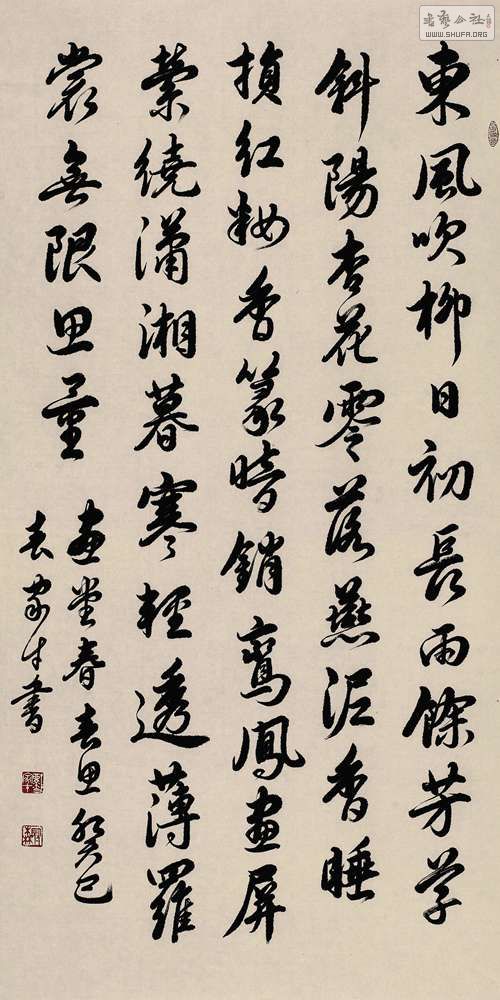 書藝公社
WWW.SHUFA.ORG
東風吹柳日初長雨餘芳草
斜陽杏花零落燕泥香睡
損紅粧香篆暗銷鸞鳳畫屏
縈繞瀟湘暮寒輕透薄羅
裳無限思量
畫堂春春思癸巳
春家才書